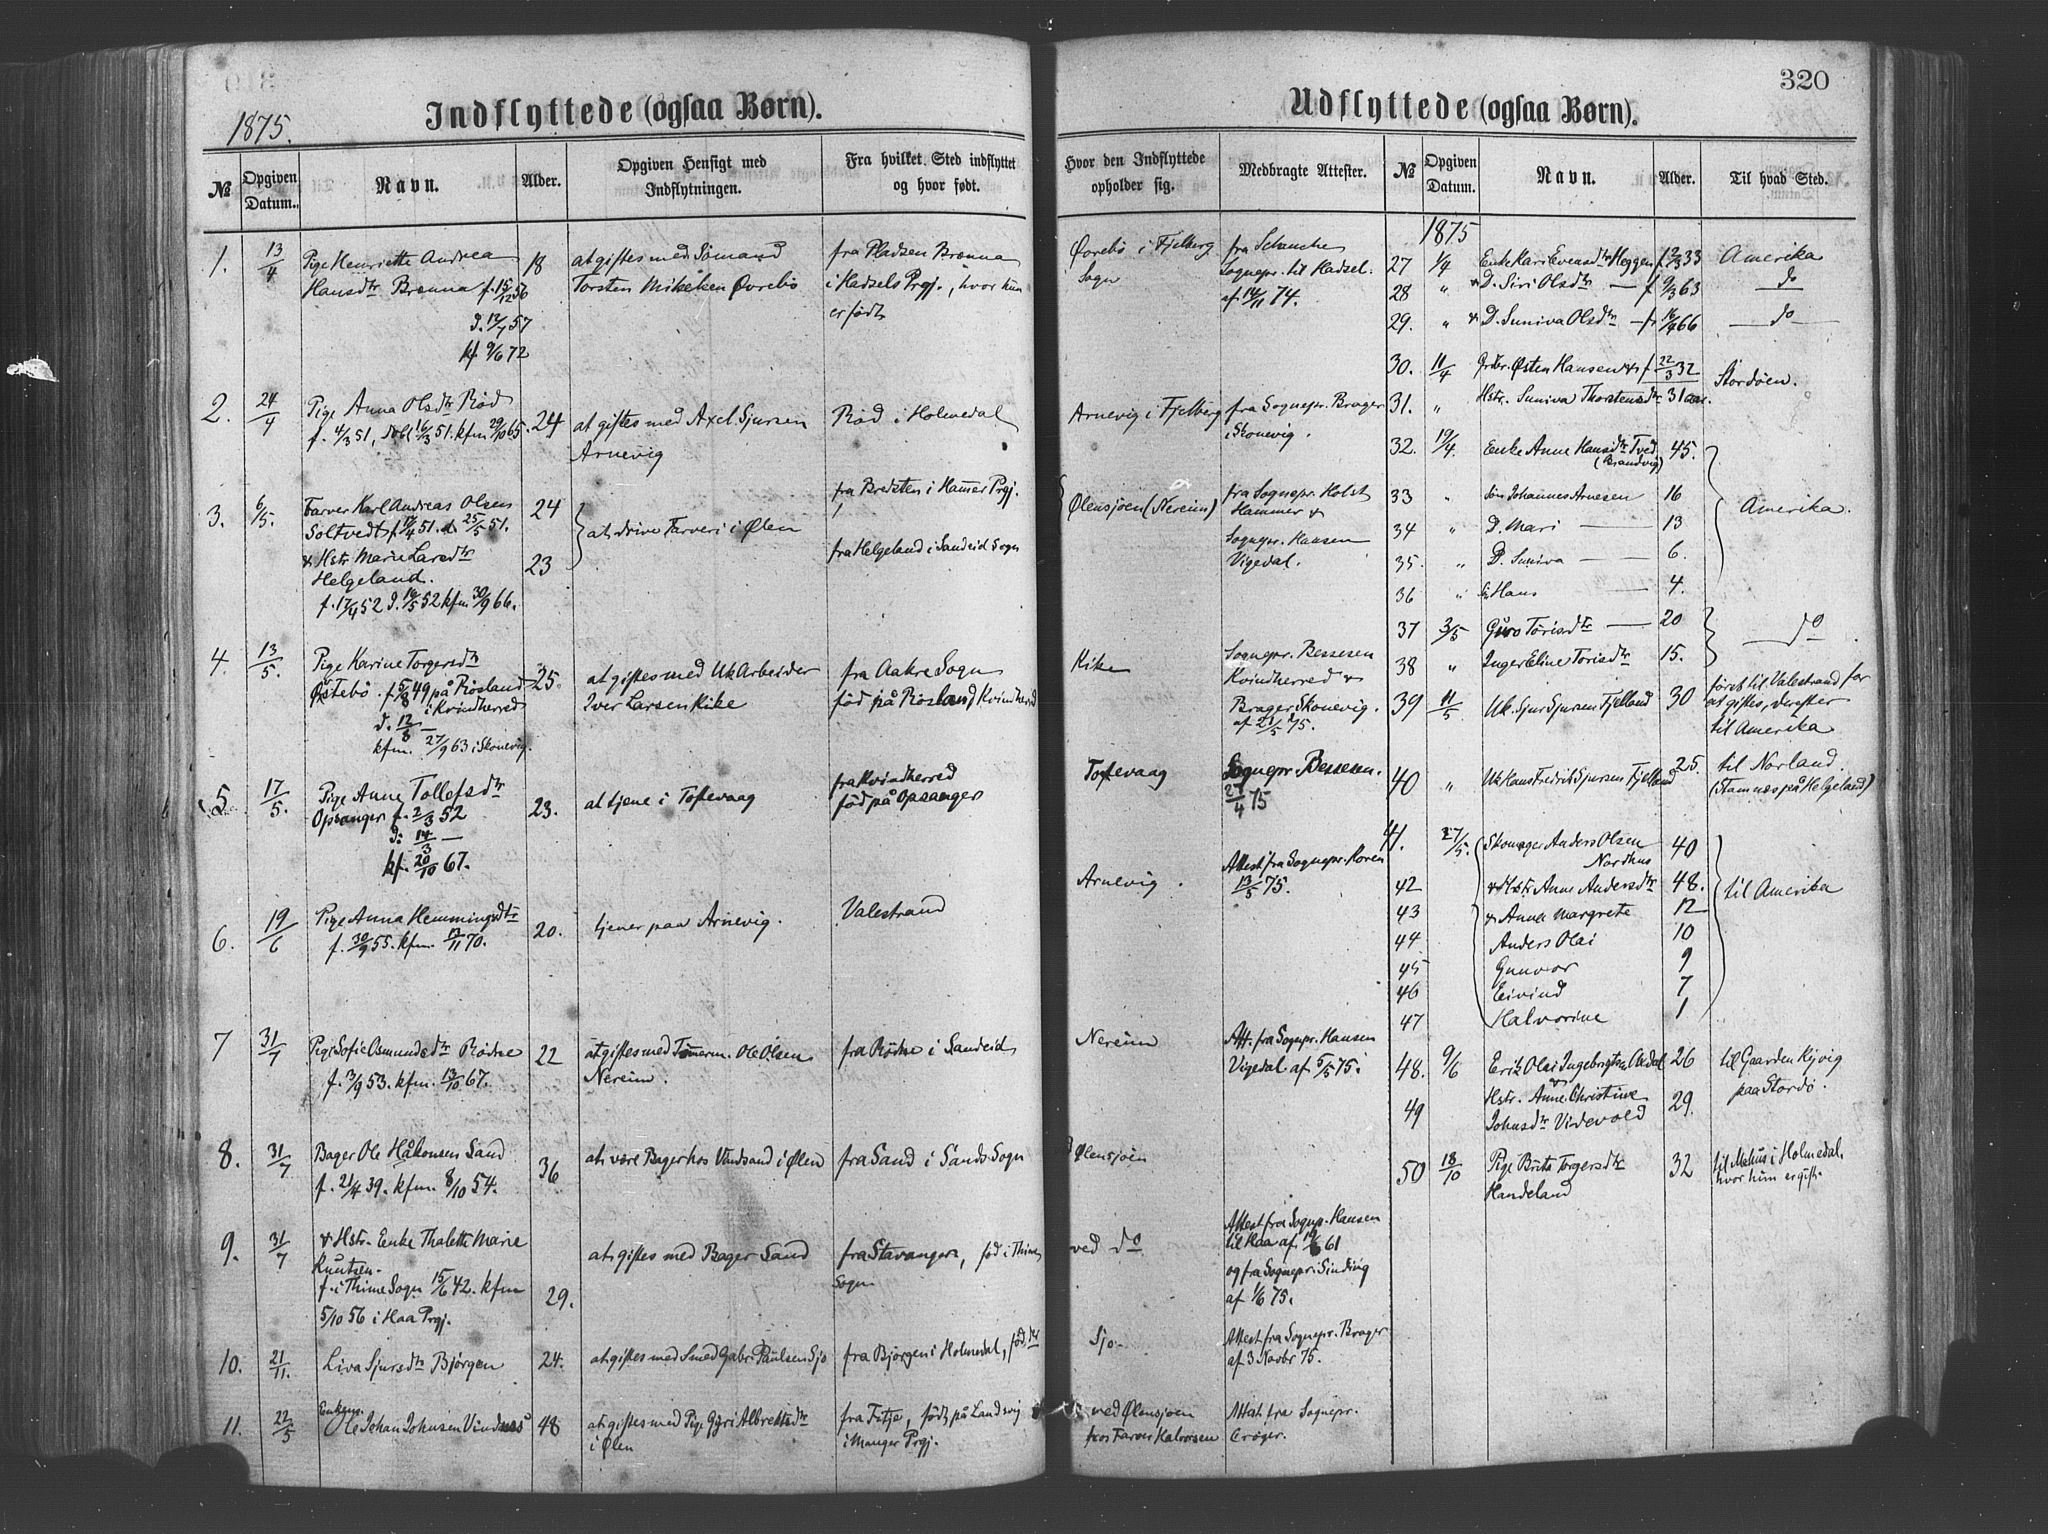 320
1875.
Indflyttede (ogsaa Børn).
Udflyttede (ogsaa Børn).
№
Opgiven Datum.
Navn.
Alder.
Opgiven Hensigt med
Indflytningen.
Fra hvilket Sted indflyttet
og hvor født.
Hvor den Indflyttede
opholder sig.
Medbragte Attester.
№
Opgiven
Datum.
Navn.
Alder.
Til hvad Sted.
1. 13/4 Pige Henriette Andrea 18 at giftes med Sømand fra Pladsen Brenna Øvrebö i Fjelberg fra Schanche
Hansdtr Brenna f. 15/12 56 Torsten Øvrebö i Hadsels Prgj., hvor hun Sogn Sognepr. til Hadsel.
d. 12/7 57 er født af 14/11 74.
kf. 9/6 72
2. 24/4 Pige Anna Olsdtr Rød 24 at giftes med Axel Sjursen Rød i Holmedal Arnevig i Fjelberg fra Sognepr. Brager
f. 4/3 51, döbt 16/3 51. kfm. 29/10 65. Arnevig i Skonevig.
3. 6/5. Farver Karl Andreas Olsen 24 at drive Farveri i Ølen fra Bredsten i Hammer Prgj. Ølensjöen (Nereim) fra Sognepr. Holst
Soltvedt f. 17/4 51. d. 25/5 51. Hammer &
& Hstr Marie Larsdtr 23 fra Helgeland i Sandeid Sogn Sognepr. Hansen
Helgeland. Vigedal.
f. 17/4 52 d. 16/5 52 kfm 30/9 66.
4. 13/5. Pige Karine Torgersdtr 25. at giftes med Uk Arbeider fra Aakre Sogn Kike Sognepr. Bessesen
Østebö. f. 5/8 49 på Røsland Iver Larsen Kike död på Røsland Kvindherred Kvindherred &
i Kvindherred Brager Skonevig.
d. 12/8 — af 21/5 75.
kfm. 27/9 63 i Skonevig.
5. 17/5. Pige Anne Tollefsdtr 23. at tjene i Toftevaag fra Kvindherred Toftevaag Sognepr. Bessesen.
Opsanger f. 2/3 52 föd på Opsanger 27/4 75
d: 14/3 —
kf. 20/10 67.
6. 19/6 Pige Anna Hemmingsdtr 20. tjener paa Arnevig. Valestrand Arnevig. Attest fra Sognepr. Koren
f. 30/9 55. kfm. 13/11 70. 13/5 75.
7 31/7 Pige Sofie Osmundsdtr Rødne 22 at giftes med Tømerm. Ole Olsen fra Rødne i Sandeid Nereim Att. fra Sognepr. Hansen
f. 3/9 53. kfm. 13/10 67. Nereim. Vigedal af 5/5 75.
8. 31/7 Bager Ole Håkonsen Sand 36 at være Bager hos Vindsand i Ølen fra Sand i Sands Sogn Ølensjöen
f. 21/4 39. kfm. 8/10 54.
9. 31/7 & Hstr. Enke Thalette Marie 29. at giftes med Bager Sand fra Stavanger, föd i Thime ved do Attest fra Sognepr. Hansen
Knutsen. Sogn til Haa af 19/6 61
f. i Thime Sogn 15/6 42. kfm og fra Sognepr. Sinding
5/10 56 i Haa Prgj. af 1/6 75.
10. 21/11. Liva Sjursdtr Bjørgen 24. at giftes med Smed Gabr. Paulsen Sjo fra Bjørgen i Holmedal, föd der Sjo. Attest fra Sognepr. Brager
af 3 Novbr 75.
11. 22/5 Enkem. Ole Johan Johnsen Vindnes 48 at giftes med Pige Gyri Albretsdtr fra Fitje, födt på Landsvig ved Ølensjoen Attest fra Sognepr.
i Ølen i Manger Prgj. hos Farver Halvorsen Cröger.
1875
27 1/4 Enke Kari Evensdtr Heggen f 12/3 33 Amerika
28 " & D. Siri Olsdtr — f 9/3 63 do
29. " & D. Suniva Olsdtr — f. 16/4 66 do
30. 11/4 Grdbr. Østen Hansen & f 22/3 32 Stordöen.
31. " Hstr. Suniva Thorstensdtr 31 aar.
32. 19/4. Enke Anne Hansdtr Tved 45. Amerika.
(Brandvig)
33 " Sön Johannes Arnesen 16
34 " D. Mari — 13
35. " D. Suniva — 6.
36 " Hans — 4.
37 3/5 Guro Torisdtr — 20 do
38 " Inger Eline Torisdtr 15.
39 11/5 Uk. Sjur Sjursen Fjelland 30 först til Valestrand for
at giftes, derefter
til Amerika
40 " Uk Hans Fredrik Sjursen Fjelland 25. til Norland.
(Stamnes på Helgeland)
41. 27/5. Skomager Anders Olsen 40 til Amerika
Nordhus
42 & Hstr Anne Andersdtr 48.
43 & Anna Margrete 12
44 Anders Olai 10
45 Gunvor 9
46 Eivind 7
47 Halvorine 1
48. 9/6 Erik Olai Ingebrigtsen 26 til Gaarden Kyvig
49 Hstr. & Anne Christine 29. paa Stordö.
Johnsdtr Videvold
50 18/10 Pige Brita Torgersdtr 32 til i Holmedal,
Handeland hvor hun er gift.